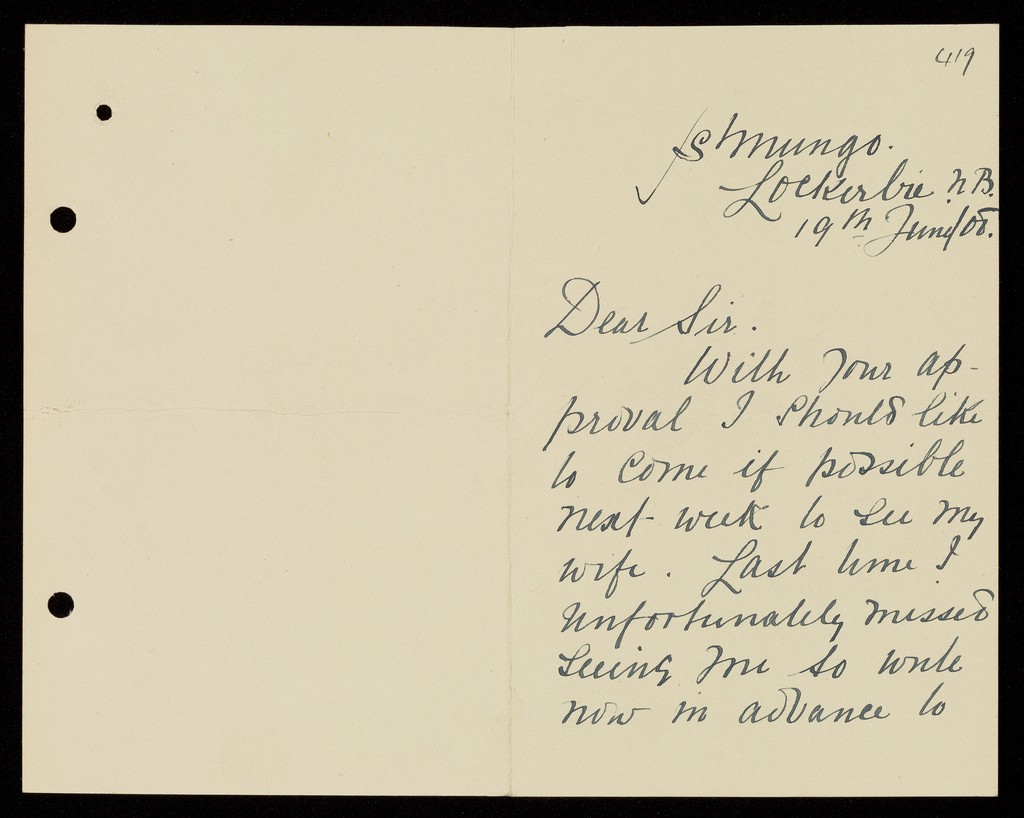 419
St Mungo.
Lockerbie. N.B.
19th June/08.
Dear Sir.
With your ap-
proval I should like
to come if possible
next week to see my
wife. Last time I
unfortunately missed
seeing you so write
now in advance to